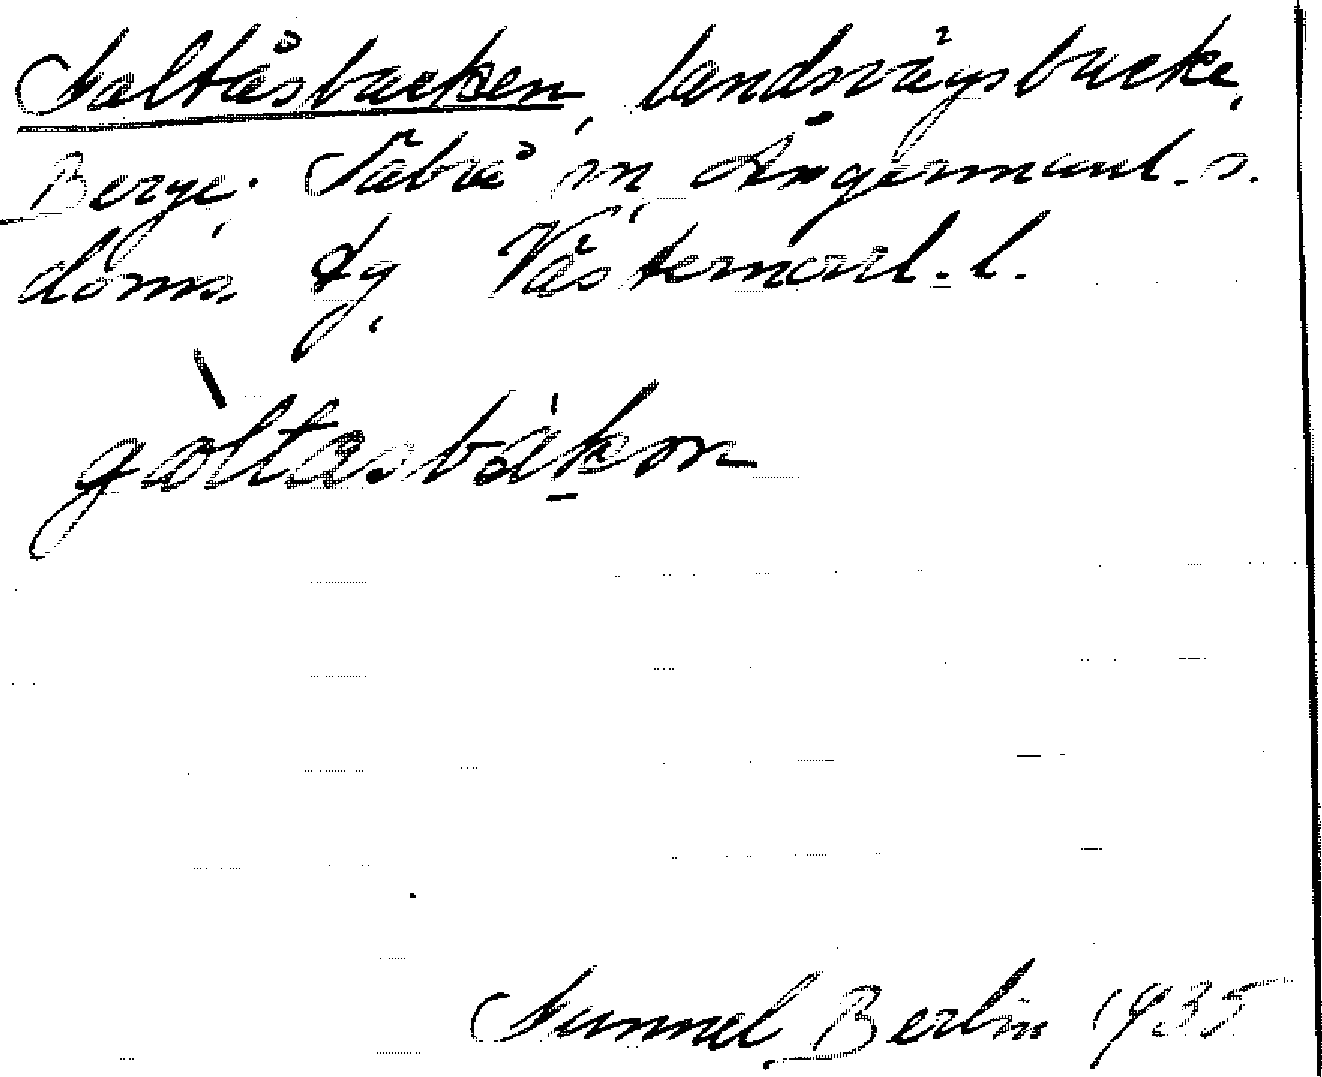 Galtåsbacken, landsvägsbacke,
Berge. Säbrå sn, Ångermanl. s.
doms. tg, Västernorrl. l.
gàltasbakən
Gunnel Berlin 1935